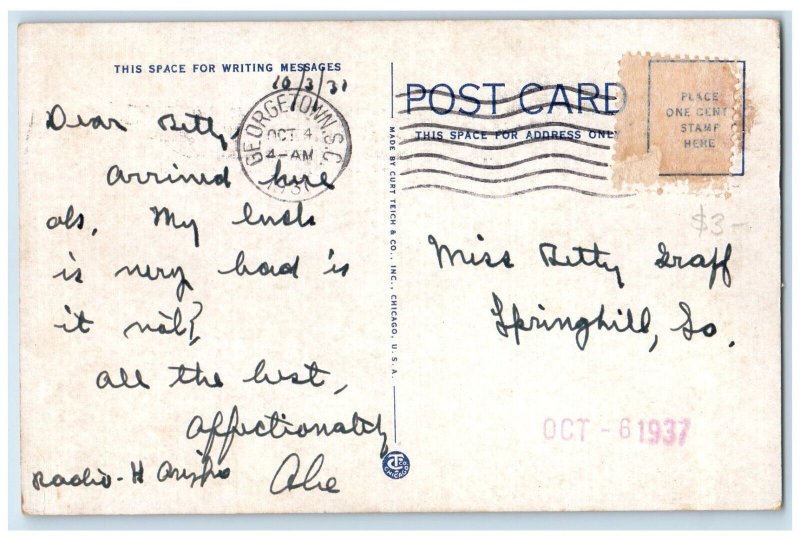 THIS SPACE FOR WRITING MESSAGES
10/3/31
Dear Betty,
arrived here
My luck
is very bad is
it not?
all the best,
affectionately
Abe
Radio-H
GEORGETOWN, S.C.
OCT 4
4-AM
MADE BY CURT TEICH & CO., INC., CHICAGO, U.S.A.
C.T. CO.
CHICAGO
POST CARD
THIS SPACE FOR ADDRESS ONLY
PLACE
ONE CENT
STAMP
HERE
$3-
Miss Betty Graff
Springhill, La.
OCT - 6 1937